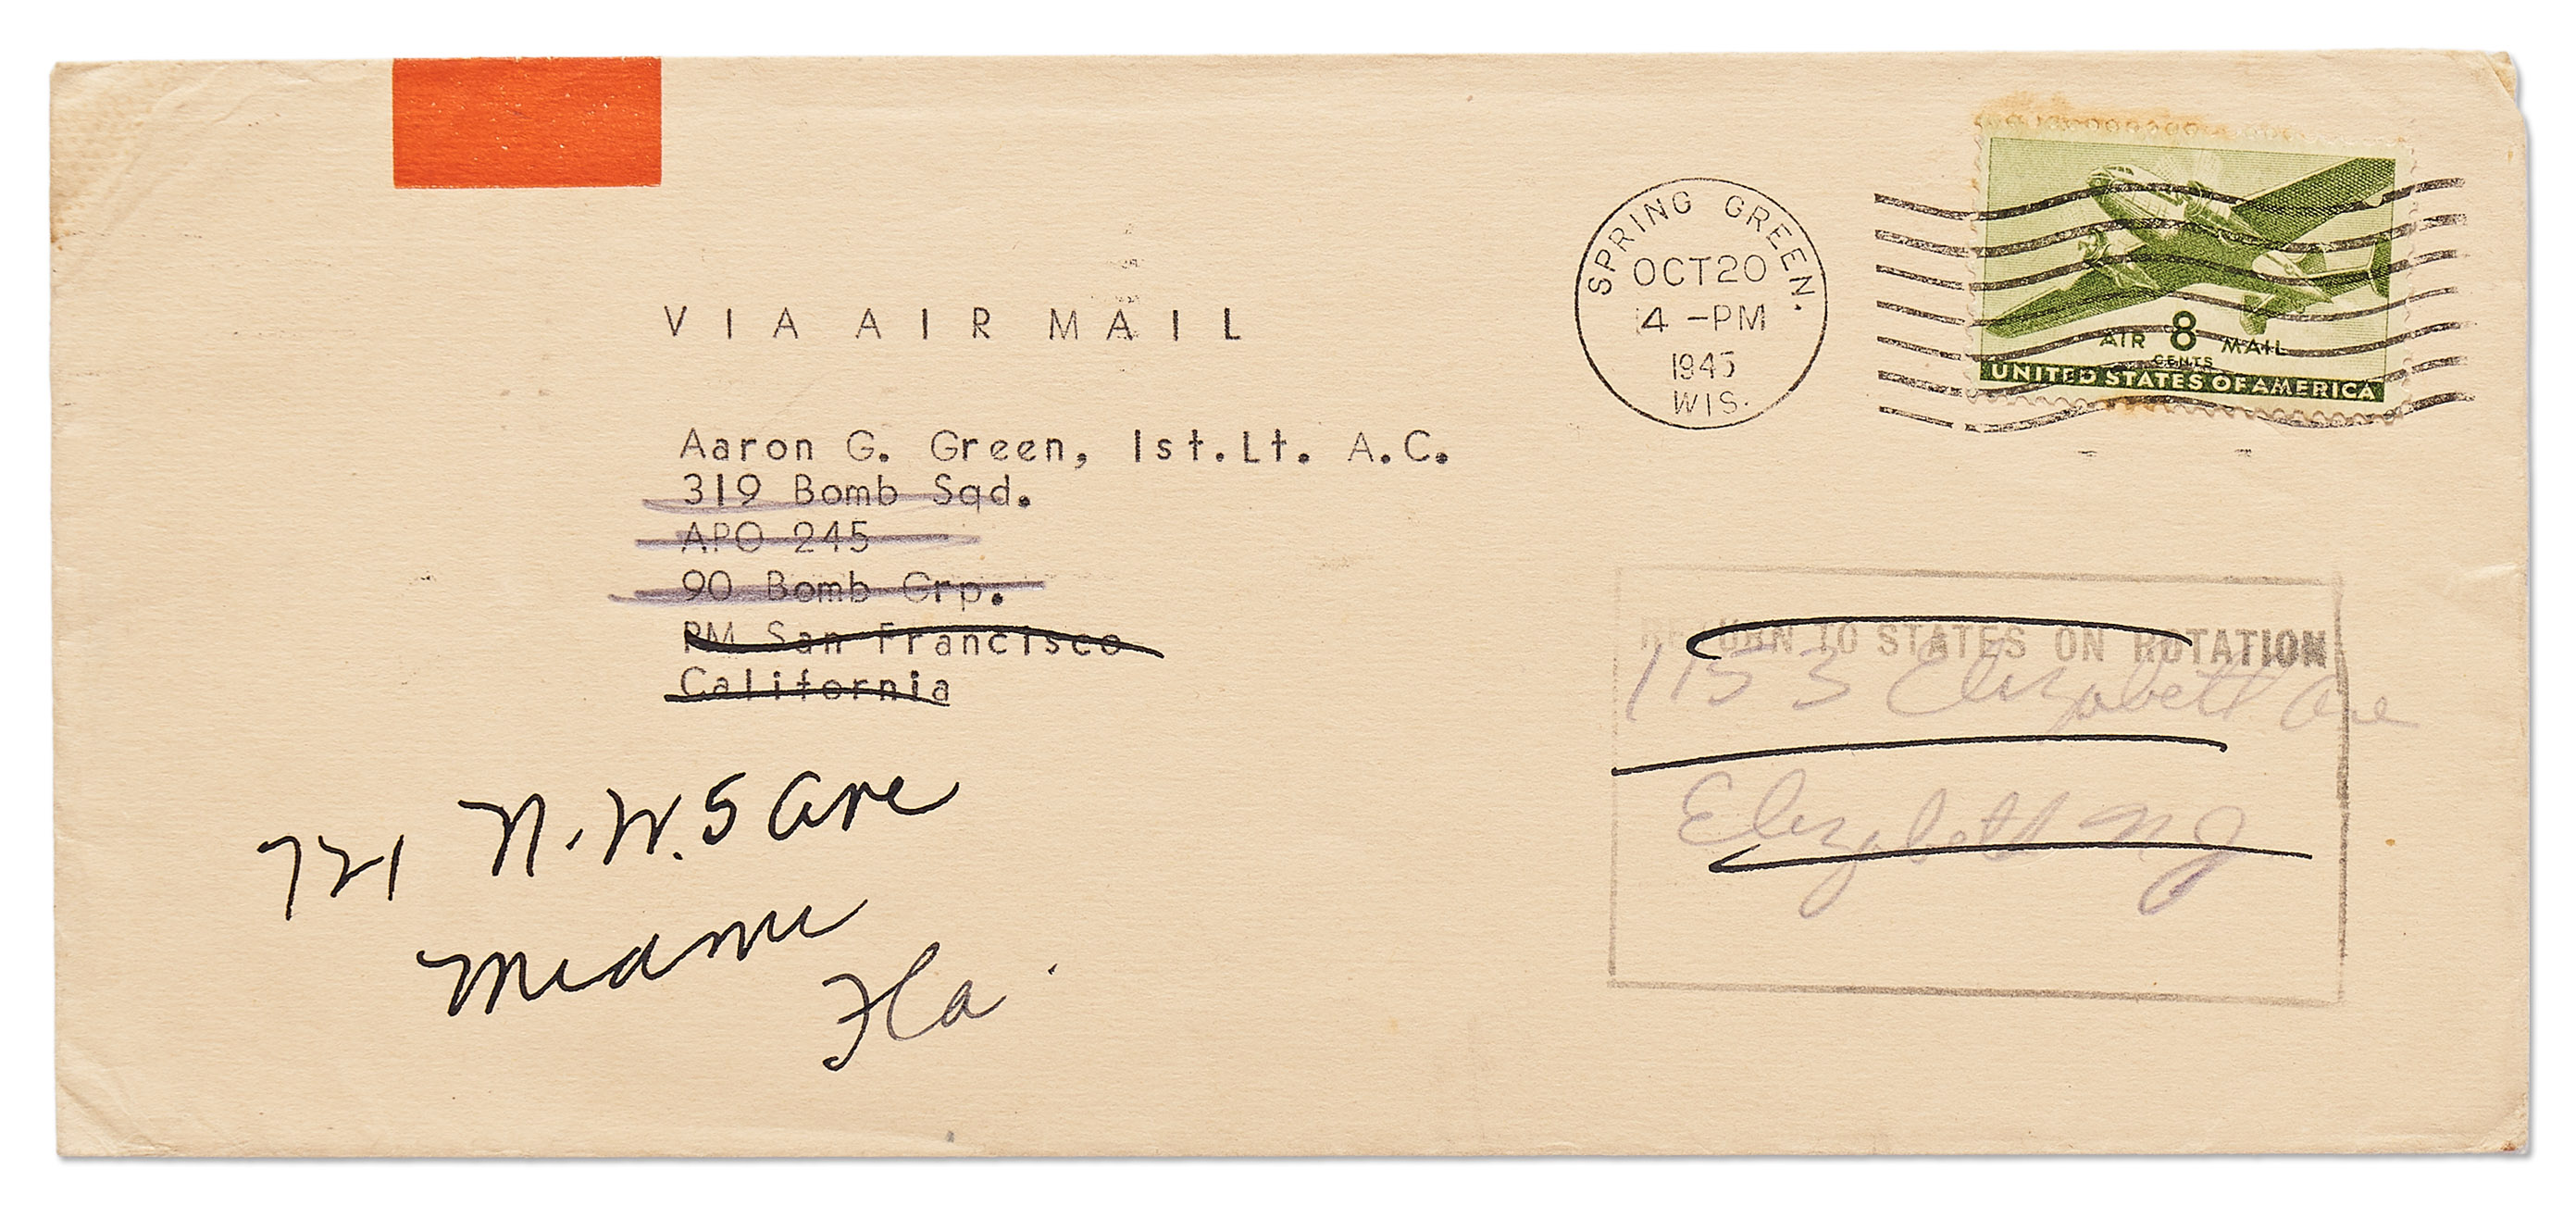 VIA AIR MAIL
SPRING GREEN.
OCT 20
4 -PM
1945
WIS.
AIR 8 MAIL
CENTS
UNITED STATES OF AMERICA
Aaron G. Green, 1st.Lt. A.C.
319 Bomb Sqd.
APO 245
90 Bomb Grp.
PM San Francisco
California
RETURN TO STATES ON ROTATION
1153 Elizabeth Ave
Elizabeth NJ
721 N.W. 5 Ave
Miami
Fla.